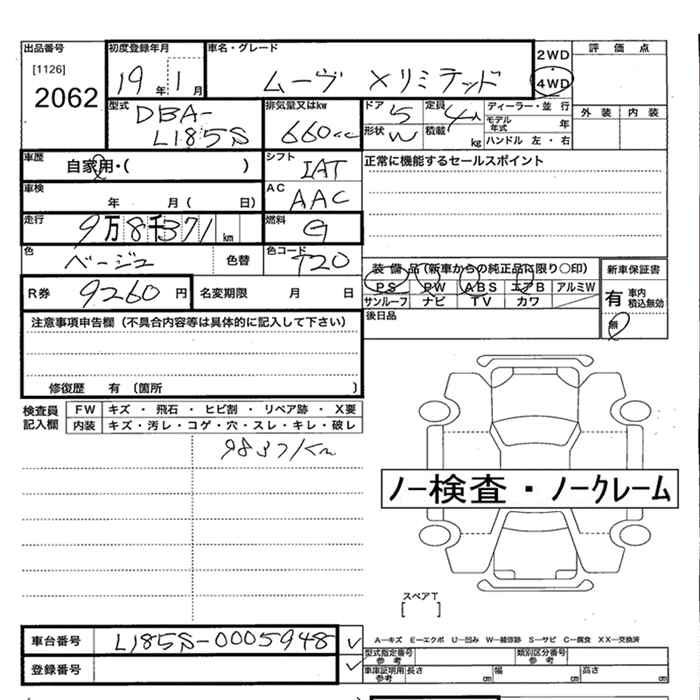 出品番号 初度登録年月 車名・グレード 2WD ・ 4WD 評価点
[1126]
2062 19年 1月 ムーヴ Xリミテッド
型式 DBA-L185S 排気量又はkw 660cc ドア 5 定員 4人 ディーラー・並行 外装 内装
形状 W 積載 kg モデル年式 年
ハンドル 左・右
車歴 自家用・( ) シフト IAT 正常に機能するセールスポイント
車検 年 月 ( 日) AC AAC
走行 9万8千371km 燃料 G
色 ベージュ 色替 色コード T20 装備品(新車からの純正品に限り○印) 新車保証書
PS PW ABS エアB アルミW 有 車内 積込無効
R券 9260円 名変期限 月 日 サンルーフ ナビ TV カワ 無
後日品
注意事項申告欄(不具合内容等は具体的に記入して下さい)
修復歴 有 〔箇所 〕
検査員記入欄 FW キズ ・ 飛石 ・ ヒビ割 ・ リペア跡 ・ X要
内装 キズ・汚レ・コゲ・穴・スレ・キレ・破レ
98371km
ノー検査・ノークレーム
スペアT
[ ]
車台番号 L185S-0005948 ✓ A-キズ E-エクボ U-凹み W-補修跡 S-サビ C-腐食 XX-交換済
型式指定番号 参考 類別区分番号 参考
登録番号 ✓ 車庫証明用 参考 長さ cm 幅 cm 高さ cm